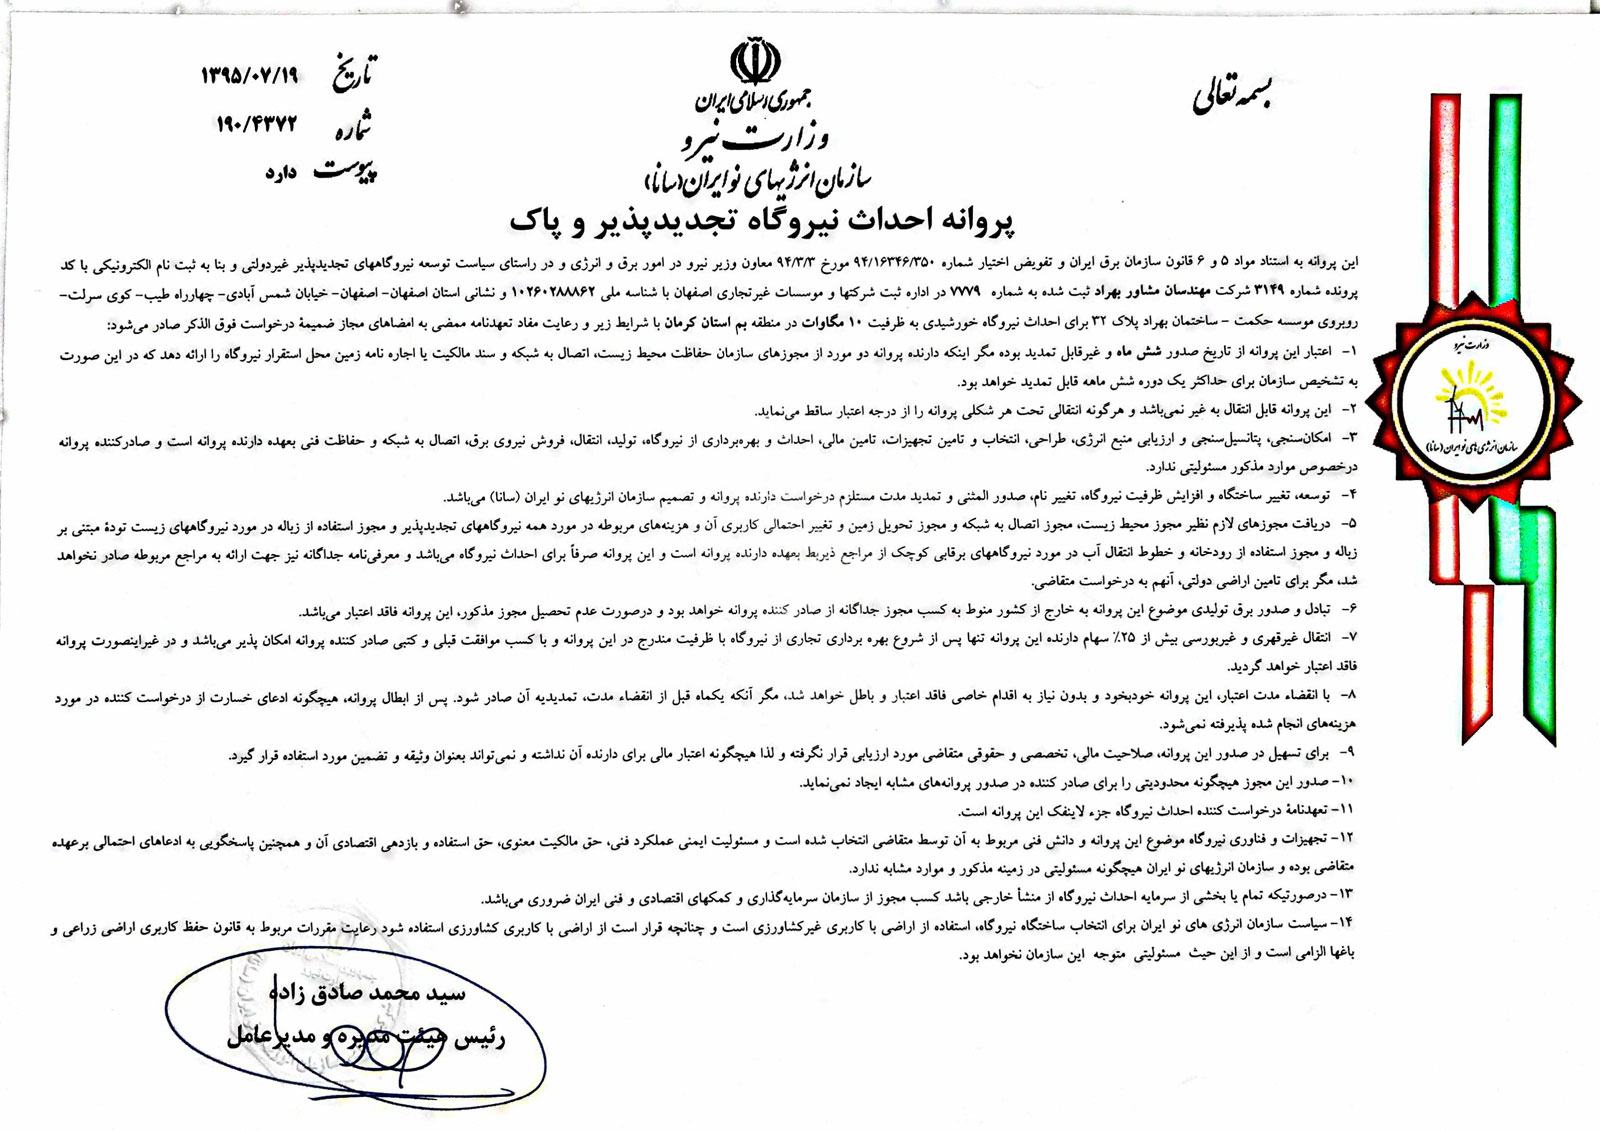 بسمه تعالی
جمهوری اسلامی ایران
وزارت نیرو
سازمان انرژیهای نو ایران (سانا)
تاریخ ۱۳۹۵/۰۷/۱۹
شماره ۱۹۰/۴۳۷۲
پیوست دارد
پروانه احداث نیروگاه تجدیدپذیر و پاک
این پروانه به استناد مواد ۵ و ۶ قانون سازمان برق ایران و تفویض اختیار شماره ۹۴/۱۶۳۴۶/۳۵۰ مورخ ۹۴/۳/۳ معاون وزیر نیرو در امور برق و انرژی و در راستای سیاست توسعه نیروگاههای تجدیدپذیر غیردولتی و بنا به ثبت نام الکترونیکی با کد
پرونده شماره ۳۱۴۹ شرکت مهندسان مشاور بهراد ثبت شده به شماره ۷۷۷۹ در اداره ثبت شرکتها و موسسات غیرتجاری اصفهان با شناسه ملی ۱۰۲۶۰۲۸۸۸۶۲ و نشانی استان اصفهان- اصفهان- خیابان شمس آبادی- چهارراه طیب- کوی سرلت-
روبروی موسسه حکمت - ساختمان بهراد پلاک ۳۲ برای احداث نیروگاه خورشیدی به ظرفیت ۱۰ مگاوات در منطقه بم استان کرمان با شرایط زیر و رعایت مفاد تعهدنامه ممضی به امضاهای مجاز ضمیمهٔ درخواست فوق الذکر صادر می‌شود:
۱- اعتبار این پروانه از تاریخ صدور شش ماه و غیرقابل تمدید بوده مگر اینکه دارنده پروانه دو مورد از مجوزهای سازمان حفاظت محیط زیست، اتصال به شبکه و سند مالکیت یا اجاره نامه زمین محل استقرار نیروگاه را ارائه دهد که در این صورت
به تشخیص سازمان برای حداکثر یک دوره شش ماهه قابل تمدید خواهد بود.
۲- این پروانه قابل انتقال به غیر نمی‌باشد و هرگونه انتقالی تحت هر شکلی پروانه را از درجه اعتبار ساقط می‌نماید.
۳- امکان‌سنجی، پتانسیل‌سنجی و ارزیابی منبع انرژی، طراحی، انتخاب و تامین تجهیزات، تامین مالی، احداث و بهره‌برداری از نیروگاه، تولید، انتقال، فروش نیروی برق، اتصال به شبکه و حفاظت فنی بعهده دارنده پروانه است و صادرکننده پروانه
درخصوص موارد مذکور مسئولیتی ندارد.
۴- توسعه، تغییر ساختگاه و افزایش ظرفیت نیروگاه، تغییر نام، صدور المثنی و تمدید مدت مستلزم درخواست دارنده پروانه و تصمیم سازمان انرژیهای نو ایران (سانا) می‌باشد.
۵- دریافت مجوزهای لازم نظیر مجوز محیط زیست، مجوز اتصال به شبکه و مجوز تحویل زمین و تغییر احتمالی کاربری آن و هزینه‌های مربوطه در مورد همه نیروگاههای تجدیدپذیر و مجوز استفاده از زباله در مورد نیروگاههای زیست تودهٔ مبتنی بر
زباله و مجوز استفاده از رودخانه و خطوط انتقال آب در مورد نیروگاههای برقابی کوچک از مراجع ذیربط بعهده دارنده پروانه است و این پروانه صرفاً برای احداث نیروگاه می‌باشد و معرفی‌نامه جداگانه نیز جهت ارائه به مراجع مربوطه صادر نخواهد
شد، مگر برای تامین اراضی دولتی، آنهم به درخواست متقاضی.
۶- تبادل و صدور برق تولیدی موضوع این پروانه به خارج از کشور منوط به کسب مجوز جداگانه از صادر کننده پروانه خواهد بود و درصورت عدم تحصیل مجوز مذکور، این پروانه فاقد اعتبار می‌باشد.
۷- انتقال غیرقهری و غیربورسی بیش از ۲۵٪ سهام دارنده این پروانه تنها پس از شروع بهره برداری تجاری از نیروگاه با ظرفیت مندرج در این پروانه و با کسب موافقت قبلی و کتبی صادر کننده پروانه امکان پذیر می‌باشد و در غیراینصورت پروانه
فاقد اعتبار خواهد گردید.
۸- با انقضاء مدت اعتبار، این پروانه خودبخود و بدون نیاز به اقدام خاصی فاقد اعتبار و باطل خواهد شد، مگر آنکه یکماه قبل از انقضاء مدت، تمدیدیه آن صادر شود. پس از ابطال پروانه، هیچگونه ادعای خسارت از درخواست کننده در مورد
هزینه‌های انجام شده پذیرفته نمی‌شود.
۹- برای تسهیل در صدور این پروانه، صلاحیت مالی، تخصصی و حقوقی متقاضی مورد ارزیابی قرار نگرفته و لذا هیچگونه اعتبار مالی برای دارنده آن نداشته و نمی‌تواند بعنوان وثیقه و تضمین مورد استفاده قرار گیرد.
۱۰- صدور این مجوز هیچگونه محدودیتی را برای صادر کننده در صدور پروانه‌های مشابه ایجاد نمی‌نماید.
۱۱- تعهدنامهٔ درخواست کننده احداث نیروگاه جزء لاینفک این پروانه است.
۱۲- تجهیزات و فناوری نیروگاه موضوع این پروانه و دانش فنی مربوط به آن توسط متقاضی انتخاب شده است و مسئولیت ایمنی عملکرد فنی، حق مالکیت معنوی، حق استفاده و بازدهی اقتصادی آن و همچنین پاسخگویی به ادعاهای احتمالی برعهده
متقاضی بوده و سازمان انرژیهای نو ایران هیچگونه مسئولیتی در زمینه مذکور و موارد مشابه ندارد.
۱۳- درصورتیکه تمام یا بخشی از سرمایه احداث نیروگاه از منشأ خارجی باشد کسب مجوز از سازمان سرمایه‌گذاری و کمکهای اقتصادی و فنی ایران ضروری می‌باشد.
۱۴- سیاست سازمان انرژی های نو ایران برای انتخاب ساختگاه نیروگاه، استفاده از اراضی با کاربری غیرکشاورزی است و چنانچه قرار است از اراضی با کاربری کشاورزی استفاده شود رعایت مقررات مربوط به قانون حفظ کاربری اراضی زراعی و
باغها الزامی است و از این حیث مسئولیتی متوجه این سازمان نخواهد بود.
سید محمد صادق زاده
رئیس هیئت مدیره و مدیرعامل
وزارت نیرو
سازمان انرژی های نو ایران (سانا)